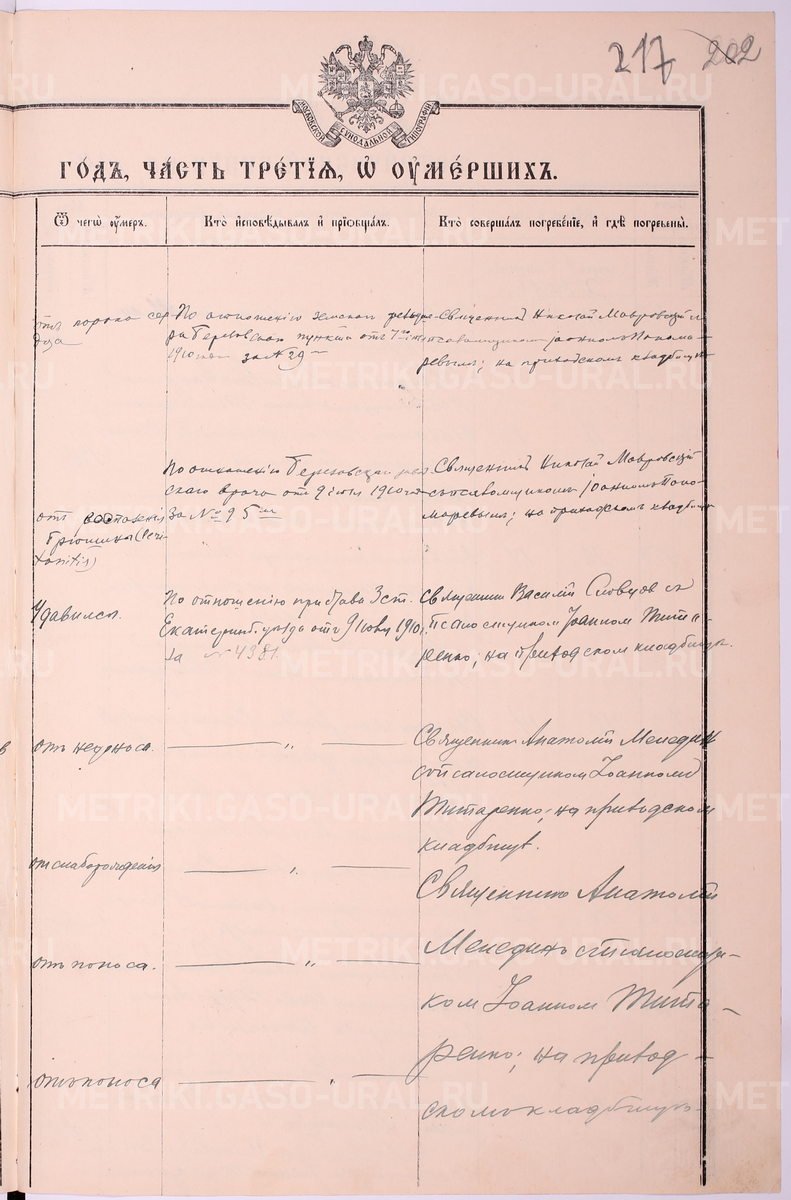 217 202
МОСКОВСКОЙ СѴНОДАЛЬНОЙ ТИПОГРАФІИ
ГОДЪ, ЧАСТЬ ТРЕТІЯ, Ѡ ОУМЕРШИХЪ.
Ѿ чегѡ оумеръ.
Кто исповѣдывалъ и прїобщалъ.
Кто совершалъ погребеніе, и гдѣ погребены.
отъ порока сер
дца
По отношенію земского
ра Березовского пункта отъ 7го
1910 года за № 29
Священникъ Николай Мавровскій с
псаломщикомъ Іоанномъ Понома-
ревымъ; на приходскомъ кладбищѣ
отъ воспаленія
брюшины (Peri
tonitis)
По отношенію Березовскаго
скаго врача отъ 9 іюня 1910 го
за № 95
Священникъ Николай Мавровскій
съ псаломщикомъ Іоанномъ Поно-
маревымъ; на приходскомъ кладбищѣ
Удавился.
По отношенію пристава 3 ст.
Екатеринб. уѣзда отъ 9 іюня 1910,
за № 4381.
Священникъ Василій Словцовъ съ
псаломщикомъ Іоанномъ Тита-
ренко; на приходскомъ кладбищѣ.
отъ недоноса.
Священникъ Анатолій Меледин
съ псаломщикомъ Іоанномъ
Титаренко; на приходскомъ
кладбищѣ.
от слаборожденія
Священникъ Анатолій
отъ поноса.
Мелединъ съ псаломщи-
комъ Іоанномъ Тита-
ренко; на приход-
отъ поноса
скомъ кладбищѣ.
METRIKI.GASO-URAL.RU